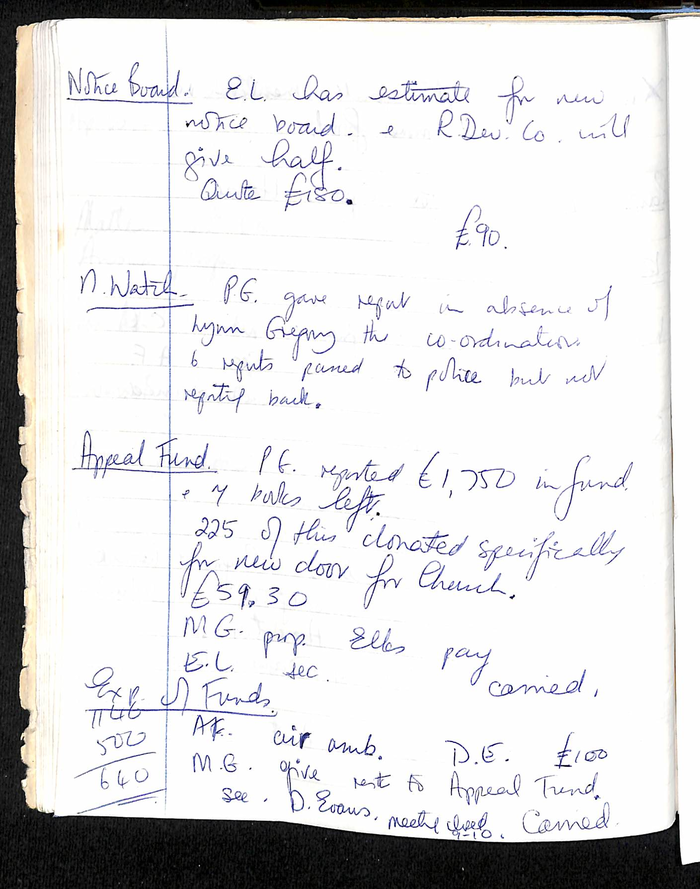 Notice Board. E.L. has estimate for new
notice board. e R.Dev. Co. will
give half.
Quote £180.
£90.
N. Watch. P.G. gave report in absence of
Lynn Gregory the co-ordinator.
6 reports passed to police but not
reptg back.
Appeal Fund. P.G. reported £1,750 in fund
e 7 books left.
225 of this donated specifically
for new door for Church.
£59.30
M.G. prop. Elks pay
E.L. sec. carried.
Exp. of Funds.
1140
500
640
air amb. D.E. £100
M.G. give rest to Appeal Fund.
sec. D. Evans. meeting closed 9-10. Carried.